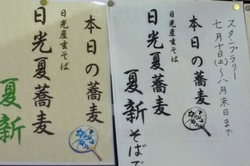 スタンプラリー
七月十日(土)～八月末日まで
本日の蕎麦
日光産玄そば
日光夏蕎麦
夏新そばで
本日の蕎麦
日光産玄そば
日光夏蕎麦
夏新